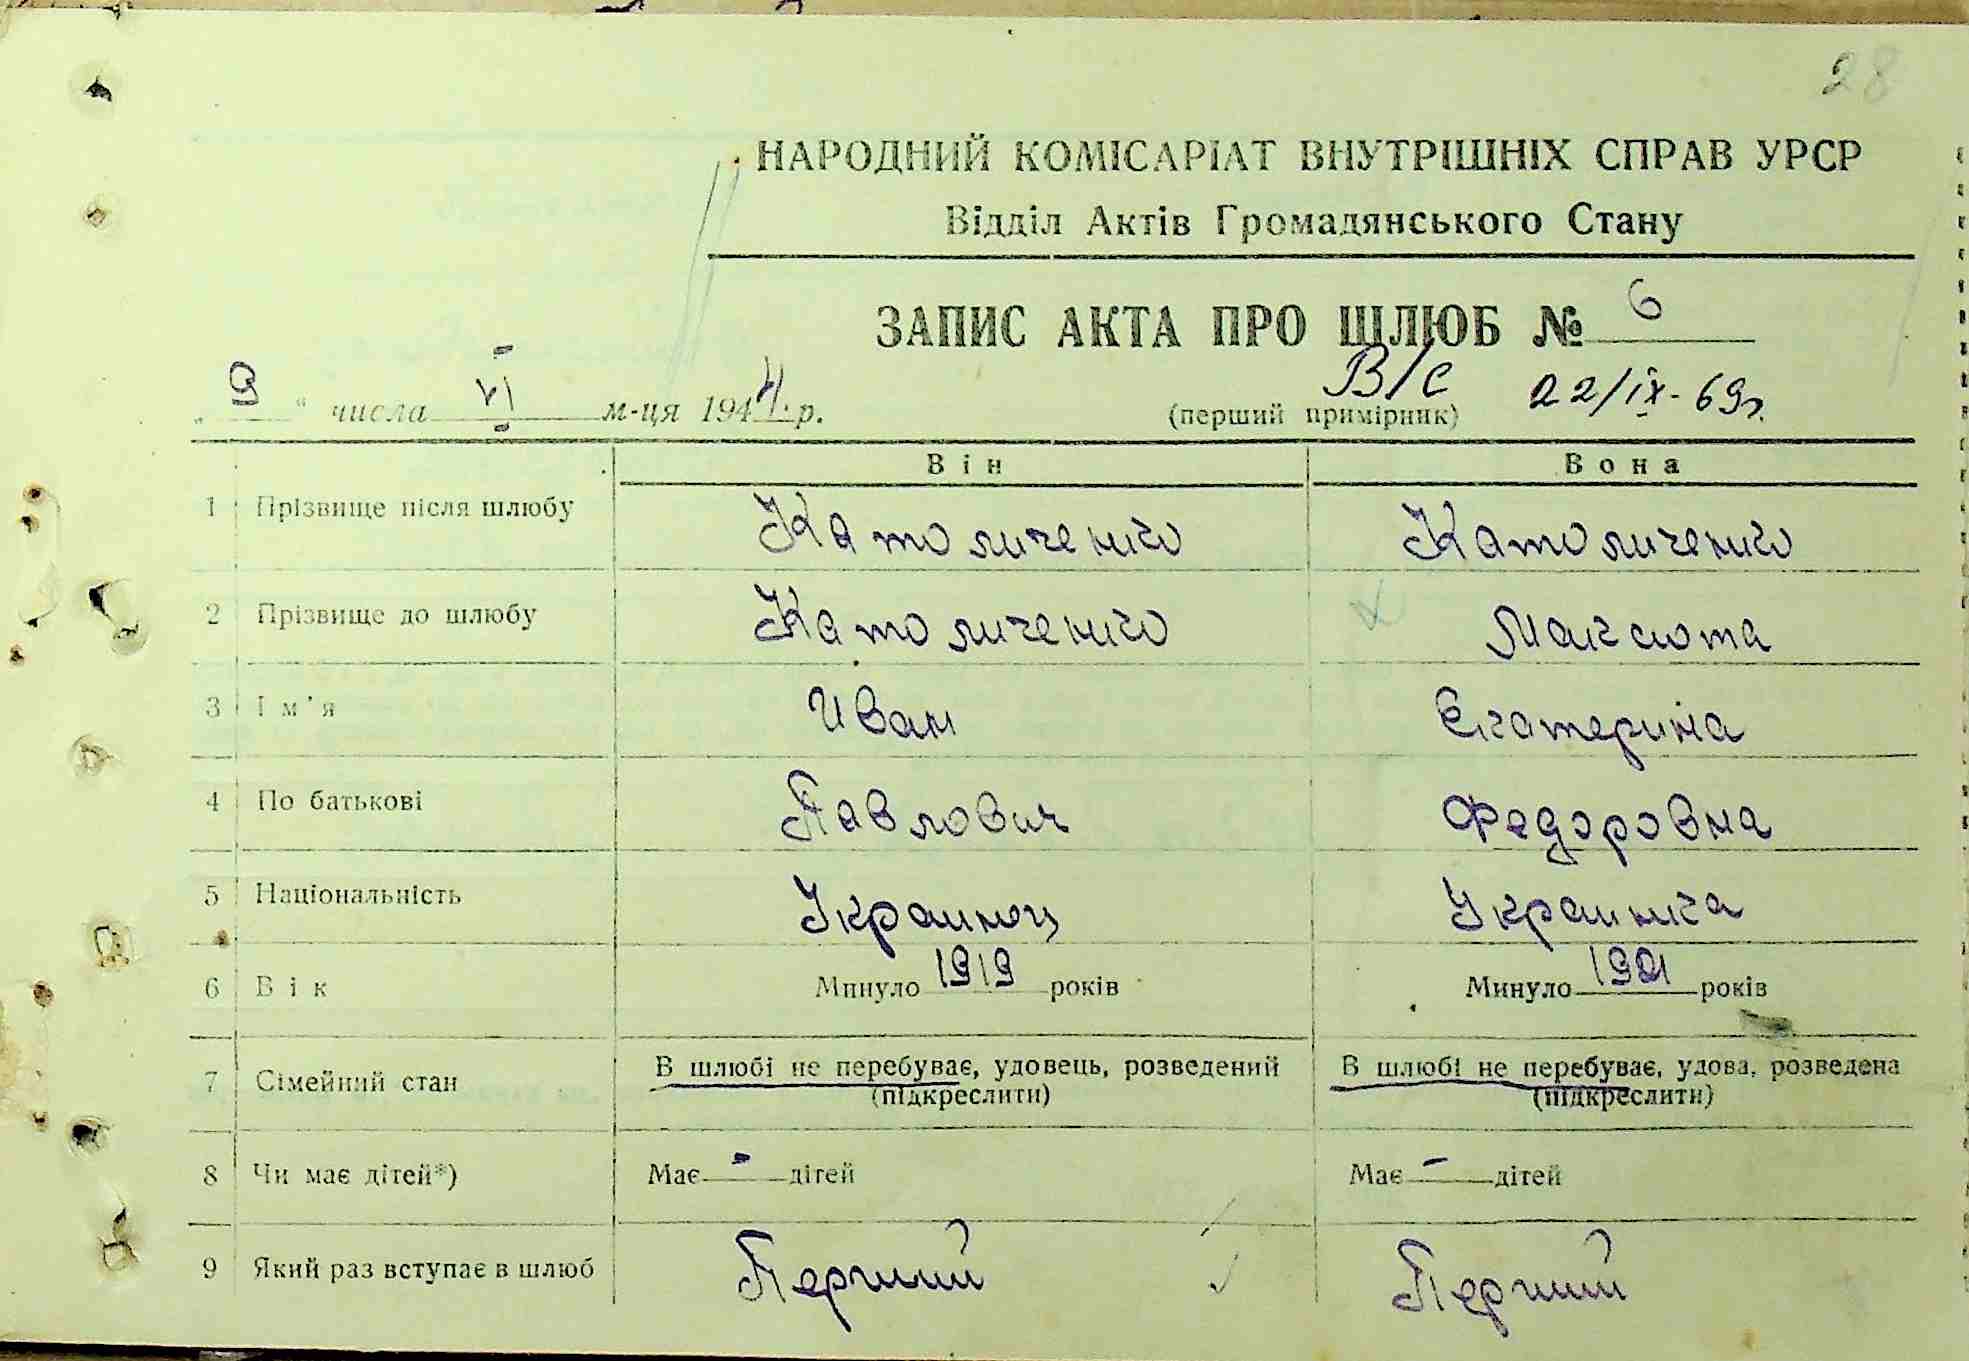 28
НАРОДНИЙ КОМІСАРІАТ ВНУТРІШНІХ СПРАВ УРСР
Відділ Актів Громадянського Стану
ЗАПИС АКТА ПРО ШЛЮБ № 6
„ 9 “ числа VI м-ця 1944 р. (перший примірник) В/с 22/IX-69г.
Він Вона
1 Прізвище після шлюбу Католиченко Католиченко
2 Прізвище до шлюбу Католиченко
3 Ім'я Иван Екатерина
4 По батькові Павлович Федоровна
5 Національність Украинец Украинка
6 Вік Минуло 1919 років Минуло 1921 років
7 Сімейний стан В шлюбі не перебуває, удовець, розведений В шлюбі не перебуває, удова, розведена
(підкреслити) (підкреслити)
8 Чи має дітей*) Має - дітей Має - дітей
9 Який раз вступає в шлюб Перший Перший